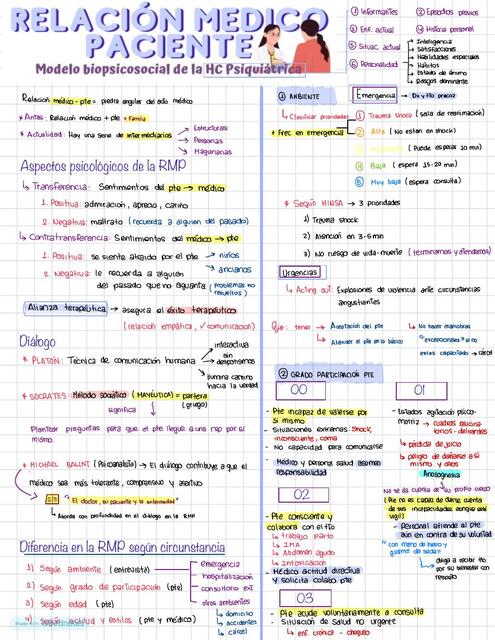 RELACIÓN MEDICO
PACIENTE
Modelo biopsicosocial de la HC Psiquiátrica
① Informantes
② Enf. actual
③ Situac. actual
⑥ Personalidad
③ Episodios previos
④ Historia personal
Inteligencia
Satisfacciones
Habilidades especiales
Hábitos
Estado de ánimo
Rasgos dominante
Relación médico-pte = piedra angular del año médico
* Antes: Relación médico + pte + familia
* Actualidad: Hay una serie de intermediarios
Estructuras
Personas
Maquinarias
Aspectos psicológicos de la RMP
↳ Transferencia: Sentimientos del pte → médico
1. Positiva: admiración, aprecio, cariño
2. Negativa: maltrato (recuerda a alguien del pasado)
↳ Contratransferencia: Sentimientos del médico → pte
1. Positiva: se siente atraido por el pte
niños
ancianos
2. Negativa: le recuerda a alguien
del pasado que no aguanta (problemas no
resueltos)
Alianza terapéutica → asegura el éxito terapéutico
(relación empática, ✓comunicación)
Diálogo
* PLATÓN: Técnica de comunicación humana
interactiva
sin
despotismos
ilumina camino
hacia la verdad
* SOCRATES: Método socrático (MAYÉUTICA) = partera
significa
(griego)
Plantear preguntas para que el pte llegue a una rsp por sí
mismo.
* MICHAEL BALINT (Psicoanalista) → El diálogo contribuye a que el
médico sea más tolerante, comprensivo y asertivo
"El doctor, su paciente y la enfermedad"
↳ Aborda con profundidad en el diálogo en la RMP
Diferencia en la RMP según circunstancia
1) Según ambiente (entrevista)
emergencia
hospitalización
consultorio ext
otros ambientes
2) Según grado de participación (pte)
3) Según edad (pte)
4) Según actitud y estilos (pte y médico)
domicilio
accidentes
cárcel
① AMBIENTE
Emergencia → Dx y tto precoz
↳ Clasificar prioridades
+ Frec en emergencia
① Trauma shock (sala de reanimación)
② Alta (No estan en shock)
(Puede esperar 10 min)
④ Baja (espera 15-20 min)
⑤ Muy baja (espera consulta)
* Según MINSA → 3 prioridades
1) Trauma shock
2) Atención en 3-5min
3) No riesgo de vida-muerte (terminamos y atendemos)
Urgencias
↳ Acting out: Explosiones de violencia ante circunstancias
angustiantes
Aceptación del pte
Atender al pte en lo básico
No hacer maniobras
"excepcionales" si no
estas capacitado → cárcel
② GRADO PARTICIPACIÓN PTE
00
- Pte incapaz de valerse por
si mismo
- Situaciones extremas: shock,
inconsciente, coma
- No capacidad para comunicarse
- Médico y personal salud asumen
responsabilidad
01
- Estados agitación psico-
motriz → cuadros alucina-
torios - delirantes
↳ pérdida de juicio
↳ peligro de dañarse a sí
mismo y otros
Anosognosia
No se da cuenta de su propio cuerpo
(Pte no es capaz de darse cuenta
de sus incapacidades aunque esté
vigil)
- Personal atiende al pte
aún en contra de su voluntad
02
- Pte consciente y
colabora con el tto
↳ trabajo parto
↳ IMA
↳ Abdomen agudo
↳ Intoxicación
- Médico actitud directiva
y solicita colab pte
03
- Pte acude voluntariamente a consulta
- Situación de salud no urgente
↳ enf. crónica - chequeo